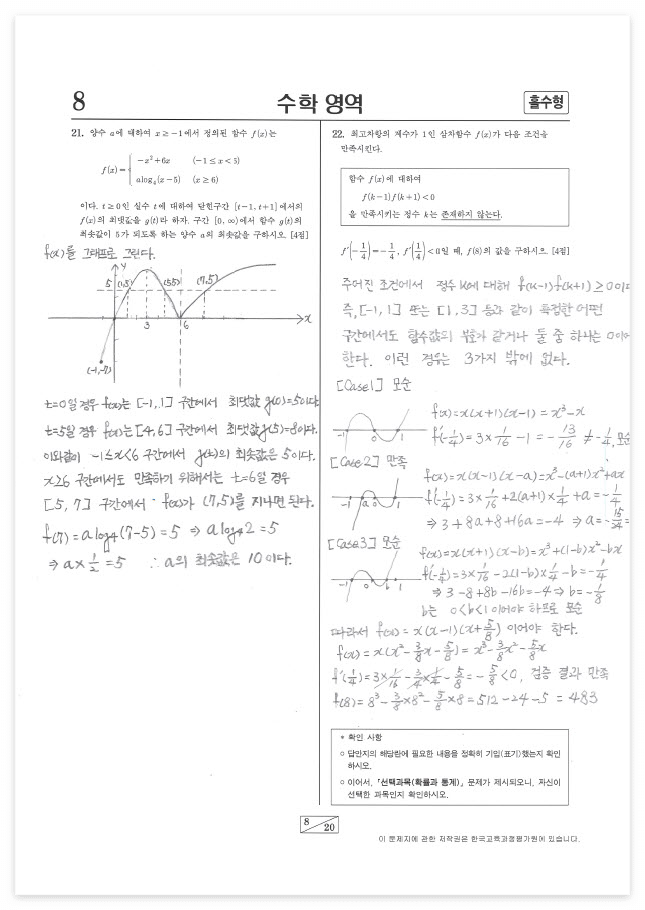 8
수학 영역
홀수형
21. 양수 a에 대하여 x ≥ -1에서 정의된 함수 f(x)는
f(x) = { -x²+6x (-1 ≤ x < 6)
a log₄(x-5) (x ≥ 6)
이다. t ≥ 0인 실수 t에 대하여 닫힌구간 [t-1, t+1]에서의
f(x)의 최댓값을 g(t)라 하자. 구간 [0, ∞)에서 함수 g(t)의
최솟값이 5가 되도록 하는 양수 a의 최솟값을 구하시오. [4점]
f(x)를 그래프로 그린다.
y
5 (1,5) (5,5) (7,5)
3 6 x
(-1,-7)
t=0일 경우 f(x)는 [-1,1] 구간에서 최댓값 g(0)=5이다.
t=5일 경우 f(x)는 [4,6] 구간에서 최댓값 g(5)=8이다.
이와같이 -1≤x<6 구간에서 g(t)의 최솟값은 5이다.
x≥6 구간에서도 만족하기 위해서는 t=6일 경우
[5, 7] 구간에서 f(x)가 (7,5)를 지나면 된다.
f(7)=a log₄(7-5)=5 ⇒ a log₄2=5
⇒ a×1/2=5 ∴ a의 최솟값은 10이다.
22. 최고차항의 계수가 1인 삼차함수 f(x)가 다음 조건을
만족시킨다.
함수 f(x)에 대하여
f(k-1)f(k+1) < 0
을 만족시키는 정수 k는 존재하지 않는다.
f'(-1/4) = -1/4, f'(1/4) < 0일 때, f(8)의 값을 구하시오. [4점]
주어진 조건에서 정수 k에 대해 f(k-1)f(k+1)≥0이다
즉, [-1, 1] 또는 [1, 3] 등과 같이 특정한 어떤
구간에서도 함수값의 부호가 같거나 둘 중 하나는 0이어
한다. 이런 경우는 3가지 밖에 없다.
[Case1] 모순
-1 0 1
f(x)=x(x+1)(x-1)=x³-x
f'(-1/4)=3×1/16-1=-13/16≠-1/4, 모순
[Case2] 만족
-1 a 0 1
f(x)=x(x-1)(x-a)=x³-(a+1)x²+ax
f'(-1/4)=3×1/16+2(a+1)×1/4+a=-1/4
⇒ 3+8a+8+16a=-4 ⇒ a=-15/24=
[Case3] 모순
-1 0 b 1
f(x)=x(x+1)(x-b)=x³+(1-b)x²-bx
f'(-1/4)=3×1/16-2(1-b)×1/4-b=-1/4
⇒ 3-8+8b-16b=-4 ⇒ b=-1/8
b는 0<b<1이어야 하므로 모순
따라서 f(x)=x(x-1)(x+5/8) 이어야 한다.
f(x)=x(x²-3/8x-5/8)=x³-3/8x²-5/8x
f'(1/4)=3×1/16-3/4×1/4-5/8=-5/8<0, 검증 결과 만족
f(8)=8³-3/8×8²-5/8×8=512-24-5=483
* 확인 사항
○ 답안지의 해당란에 필요한 내용을 정확히 기입(표기)했는지 확인
하시오.
○ 이어서, 「선택과목(확률과 통계)」 문제가 제시되오니, 자신이
선택한 과목인지 확인하시오.
8/20
이 문제지에 관한 저작권은 한국교육과정평가원에 있습니다.